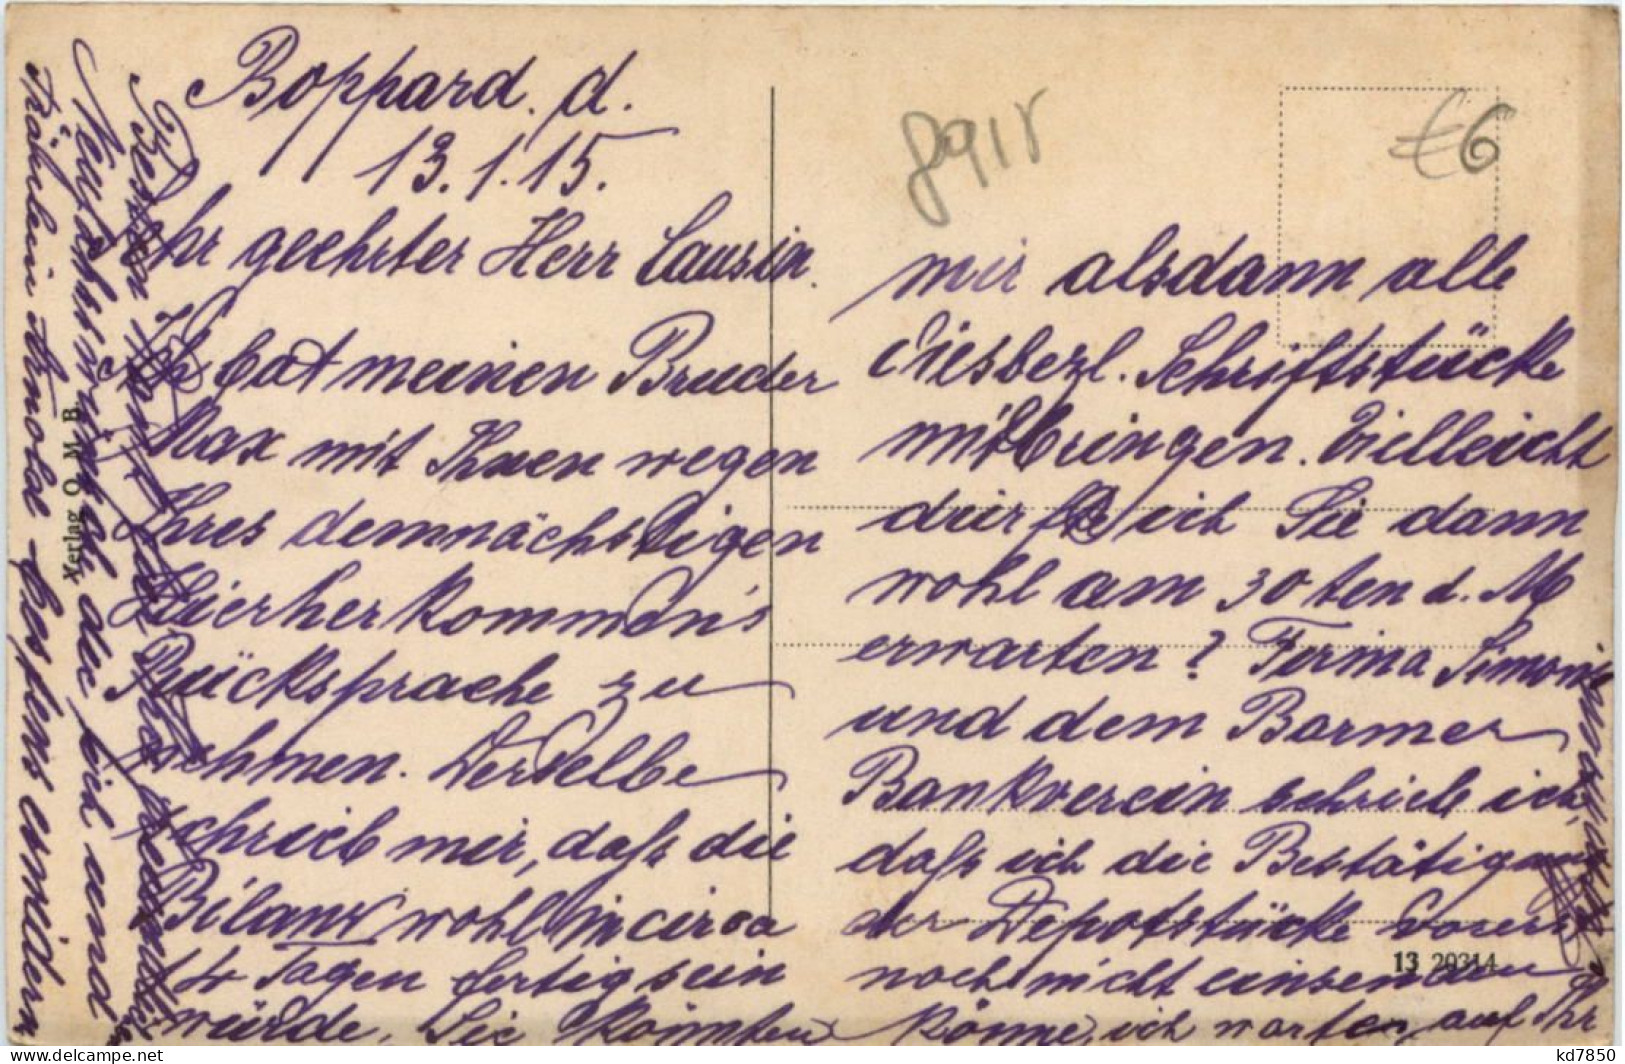 Boppard. d.
13.1.15.
Sehr geehrter Herr Lausin.
Ich bat meinen Bruder
Max mit Ihnen wegen
Ihres demnächstigen
Hierherkommen's
Rücksprache zu
nehmen. Derselbe
schrieb mir, daß die
Bilanz wohl in circa
14 Tagen fertig sein
würde. Sie könnten
mir alsdann alle
diesbezl. Schriftstücke
mitbringen. Vielleicht
dürfte ich Sie dann
wohl am 30ten d. M
erwarten? Firma Simonis
und dem Barmer
Bankverein schrieb ich,
daß ich die Bestätigung
der Depotstücke vorerst
noch nicht einsenden
könne, ich warte auf Ihr
Besten
Neujahrswünsche, die ich und
Fräulein Arnolde bestens erwidern
Verlag O. M. B.
13 20314
€6
kd7850